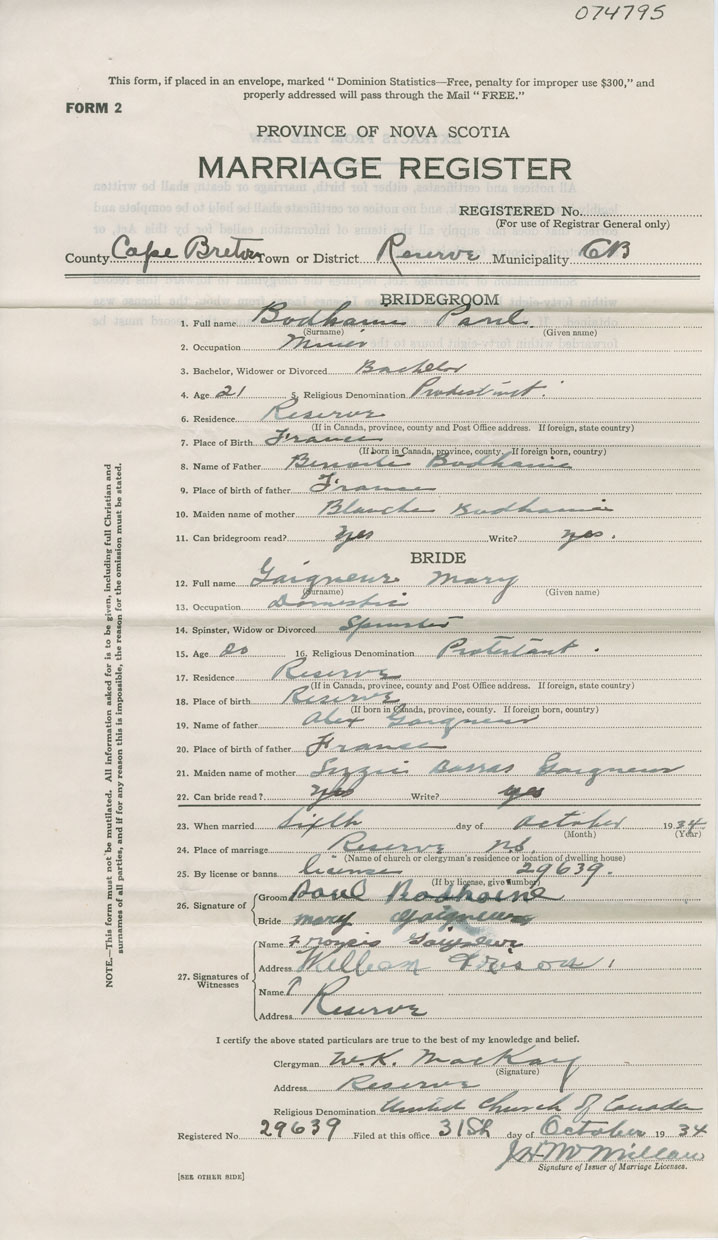 074795
This form, if placed in an envelope, marked “ Dominion Statistics—Free, penalty for improper use $300,” and
properly addressed will pass through the Mail “ FREE.”
FORM 2
PROVINCE OF NOVA SCOTIA
MARRIAGE REGISTER
REGISTERED No.
(For use of Registrar General only)
County Cape Breton Town or District Reserve Municipality CB
BRIDEGROOM
1. Full name Paul
(Surname) (Given name)
2. Occupation Miner
3. Bachelor, Widower or Divorced Bachelor
4. Age 21 5. Religious Denomination Protestant.
6. Residence Reserve
(If in Canada, province, county and Post Office address. If foreign, state country)
7. Place of Birth France
(If born in Canada, province, county. If foreign born, country)
8. Name of Father
9. Place of birth of father France
10. Maiden name of mother Blanche
11. Can bridegroom read? Yes Write? yes.
BRIDE
12. Full name Gaigneur Mary
(Surname) (Given name)
13. Occupation Domestic
14. Spinster, Widow or Divorced Spinster
15. Age 20 16. Religious Denomination Protestant.
17. Residence Reserve
(If in Canada, province, county and Post Office address. If foreign, state country)
18. Place of birth Reserve
(If born in Canada, province, county. If foreign born, country)
19. Name of father Alex Gaigneur
20. Place of birth of father France
21. Maiden name of mother Lizzie Barras Gaigneur
22. Can bride read? yes Write? yes
23. When married Sixth day of October 1934
(Month) (Year)
24. Place of marriage Reserve NS.
(Name of church or clergyman's residence or location of dwelling house)
25. By license or banns license 29639.
(If by license, give number)
26. Signature of
Groom Paul
Bride mary Gaigneur
27. Signatures of Witnesses
Name Francis Gaigneur
Address William
Name
Address Reserve
I certify the above stated particulars are true to the best of my knowledge and belief.
Clergyman W.K. MacKay
(Signature)
Address Reserve
Religious Denomination United Church of Canada
Registered No. 29639 Filed at this office 31st day of October 1934
Signature of Issuer of Marriage Licenses.
[SEE OTHER SIDE]
NOTE.—This form must not be mutilated. All information asked for is to be given, including full Christian and
surnames of all parties, and if for any reason this is impossible, the reason for the omission must be stated.